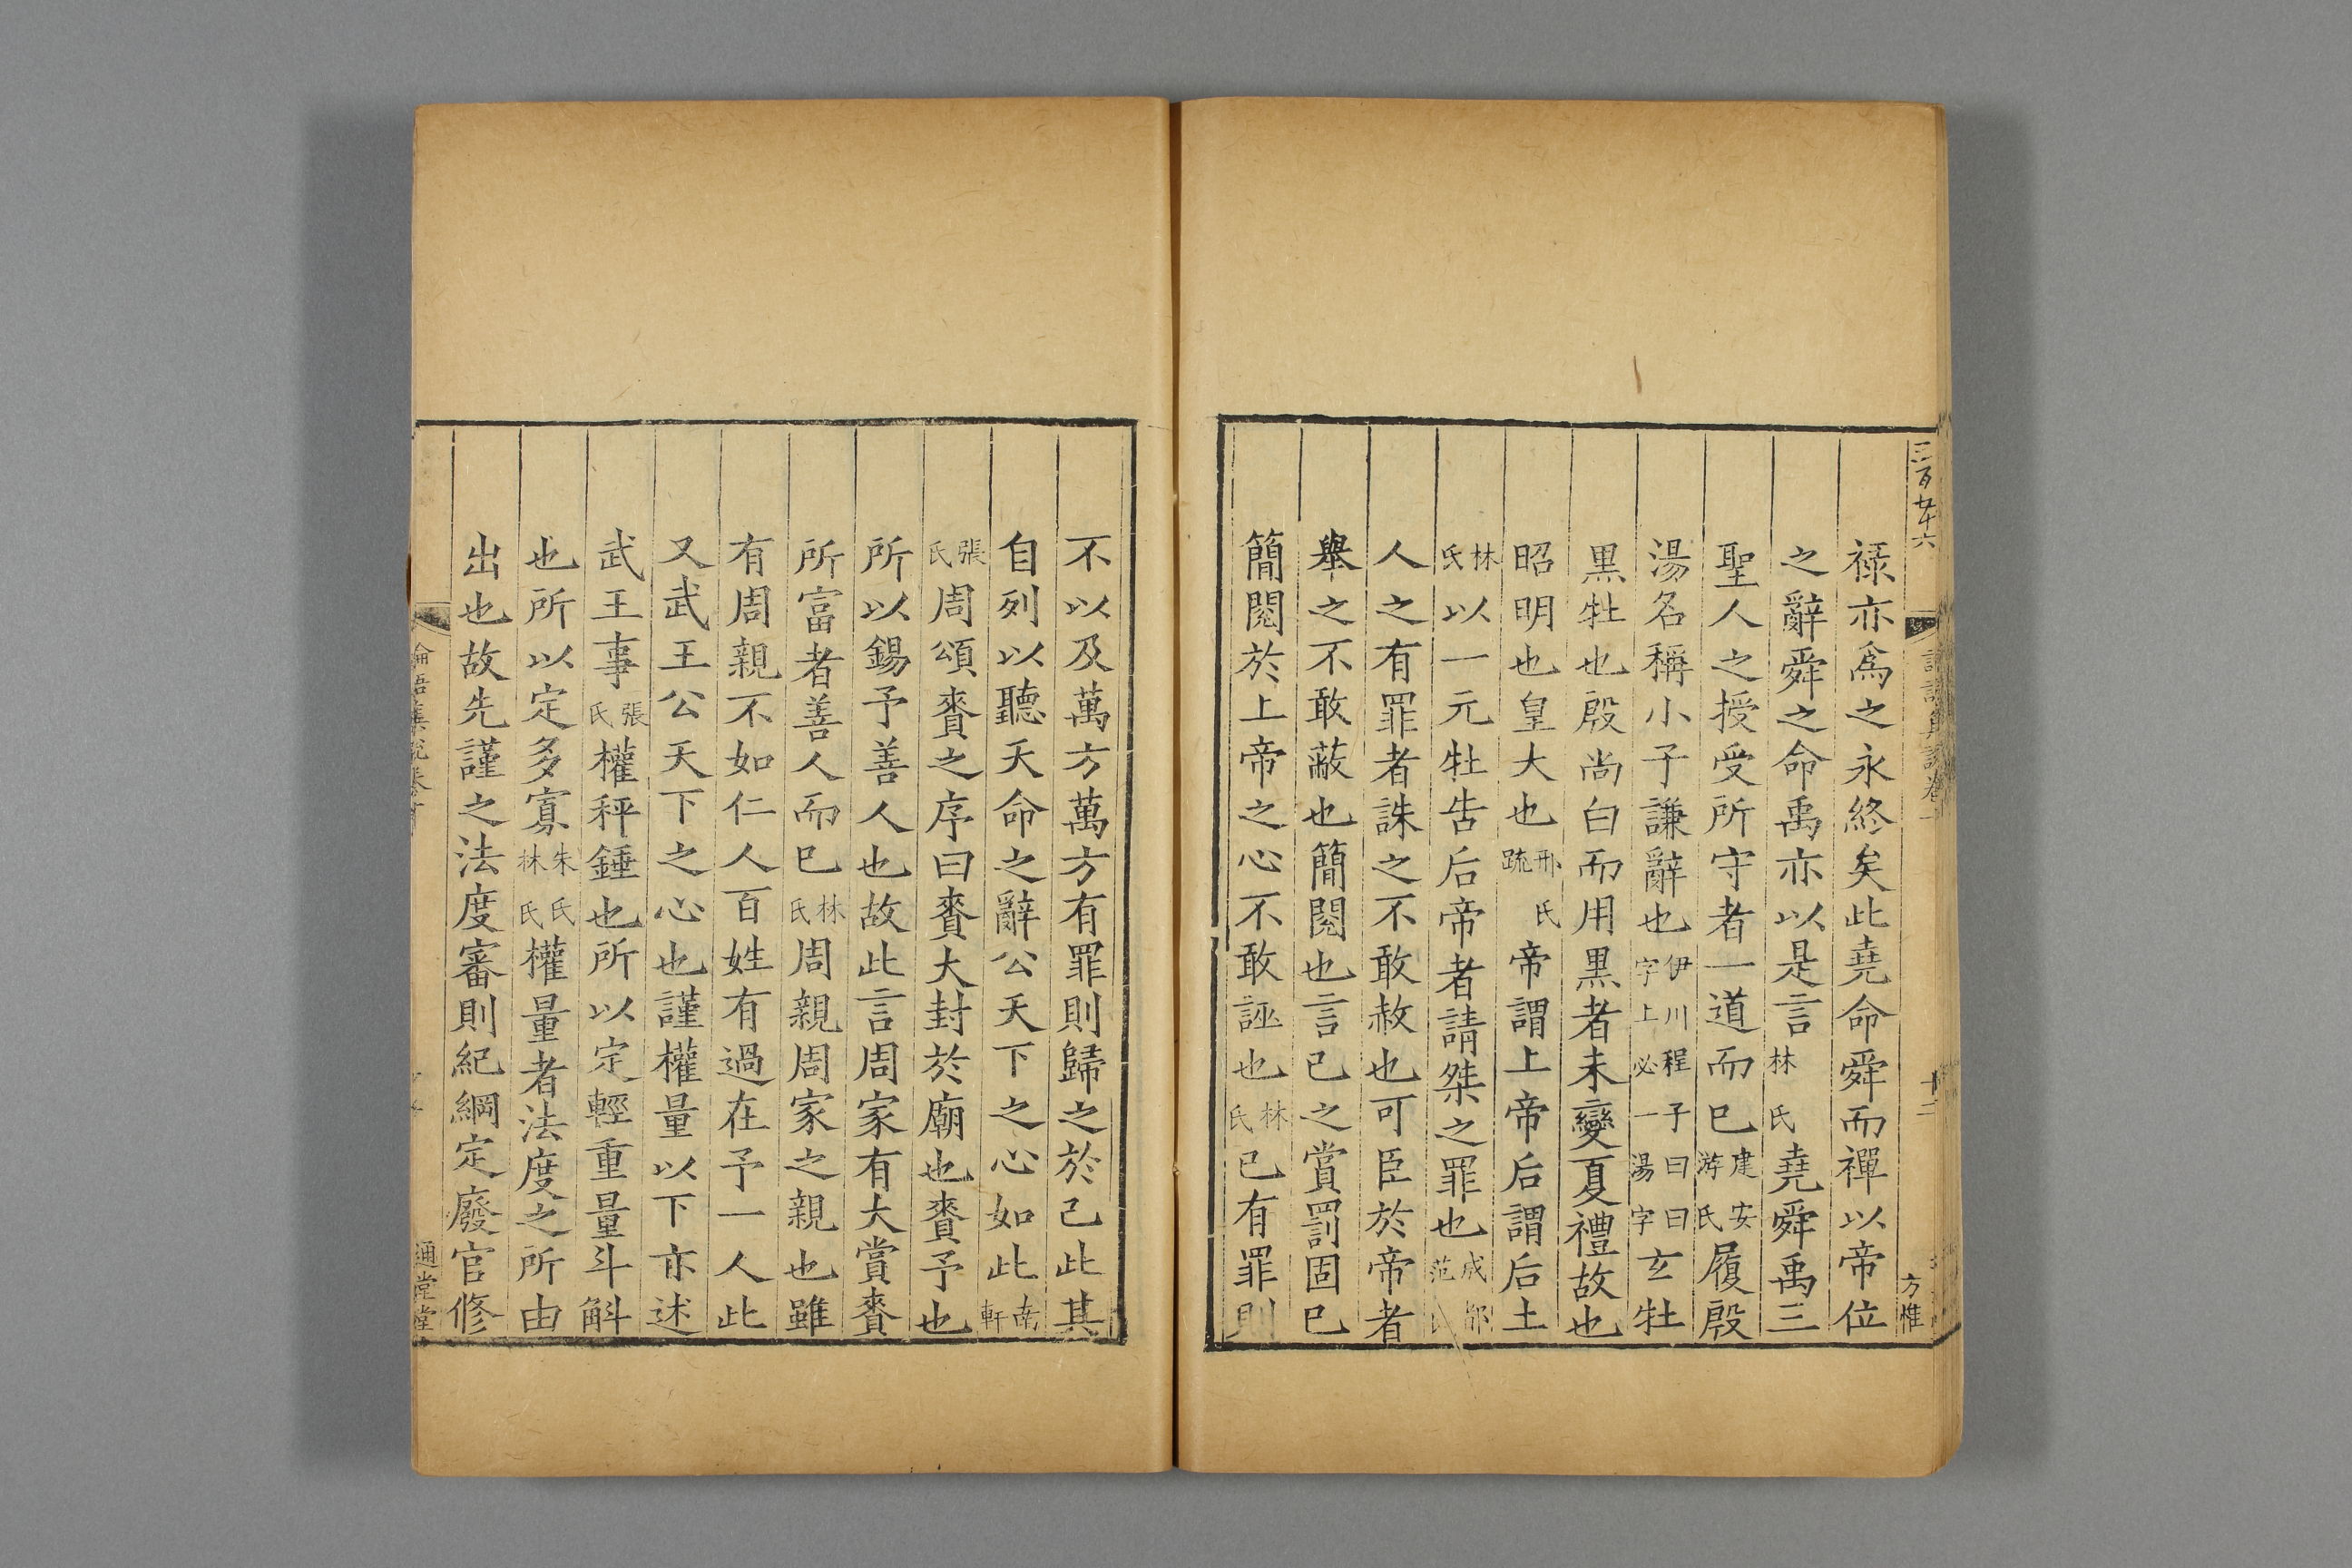 祿亦爲之永終矣此堯命舜而禪以帝位
之辭舜之命禹亦以是言林氏堯舜禹三
聖人之授受所守者一道而已建安游氏履殷
湯名稱小子謙辭也伊川程子曰曰字上必一湯字玄牡
黑牡也殷尚白而用黑者未變夏禮故也
昭明也皇大也邢氏疏帝謂上帝后謂后土
林氏以一元牡告后帝者請桀之罪也成都范氏
人之有罪者誅之不敢赦也可臣於帝者
舉之不敢蔽也簡閱也言已之賞罰固已
簡閱於上帝之心不敢誣也林氏已有罪則
不以及萬方萬方有罪則歸之於己此其
自列以聽天命之辭公天下之心如此南軒
張氏周頌賚之序曰賚大封於廟也賚予也
所以錫予善人也故此言周家有大賞賚
所富者善人而已林氏周親周家之親也雖
有周親不如仁人百姓有過在予一人此
又武王公天下之心也謹權量以下亦述
武王事張氏權秤錘也所以定輕重量斗斛
也所以定多寡朱氏林氏權量者法度之所由
出也故先謹之法度審則紀綱定廢官修
論語集說卷十
通志堂
三百廿六
十二
方惟